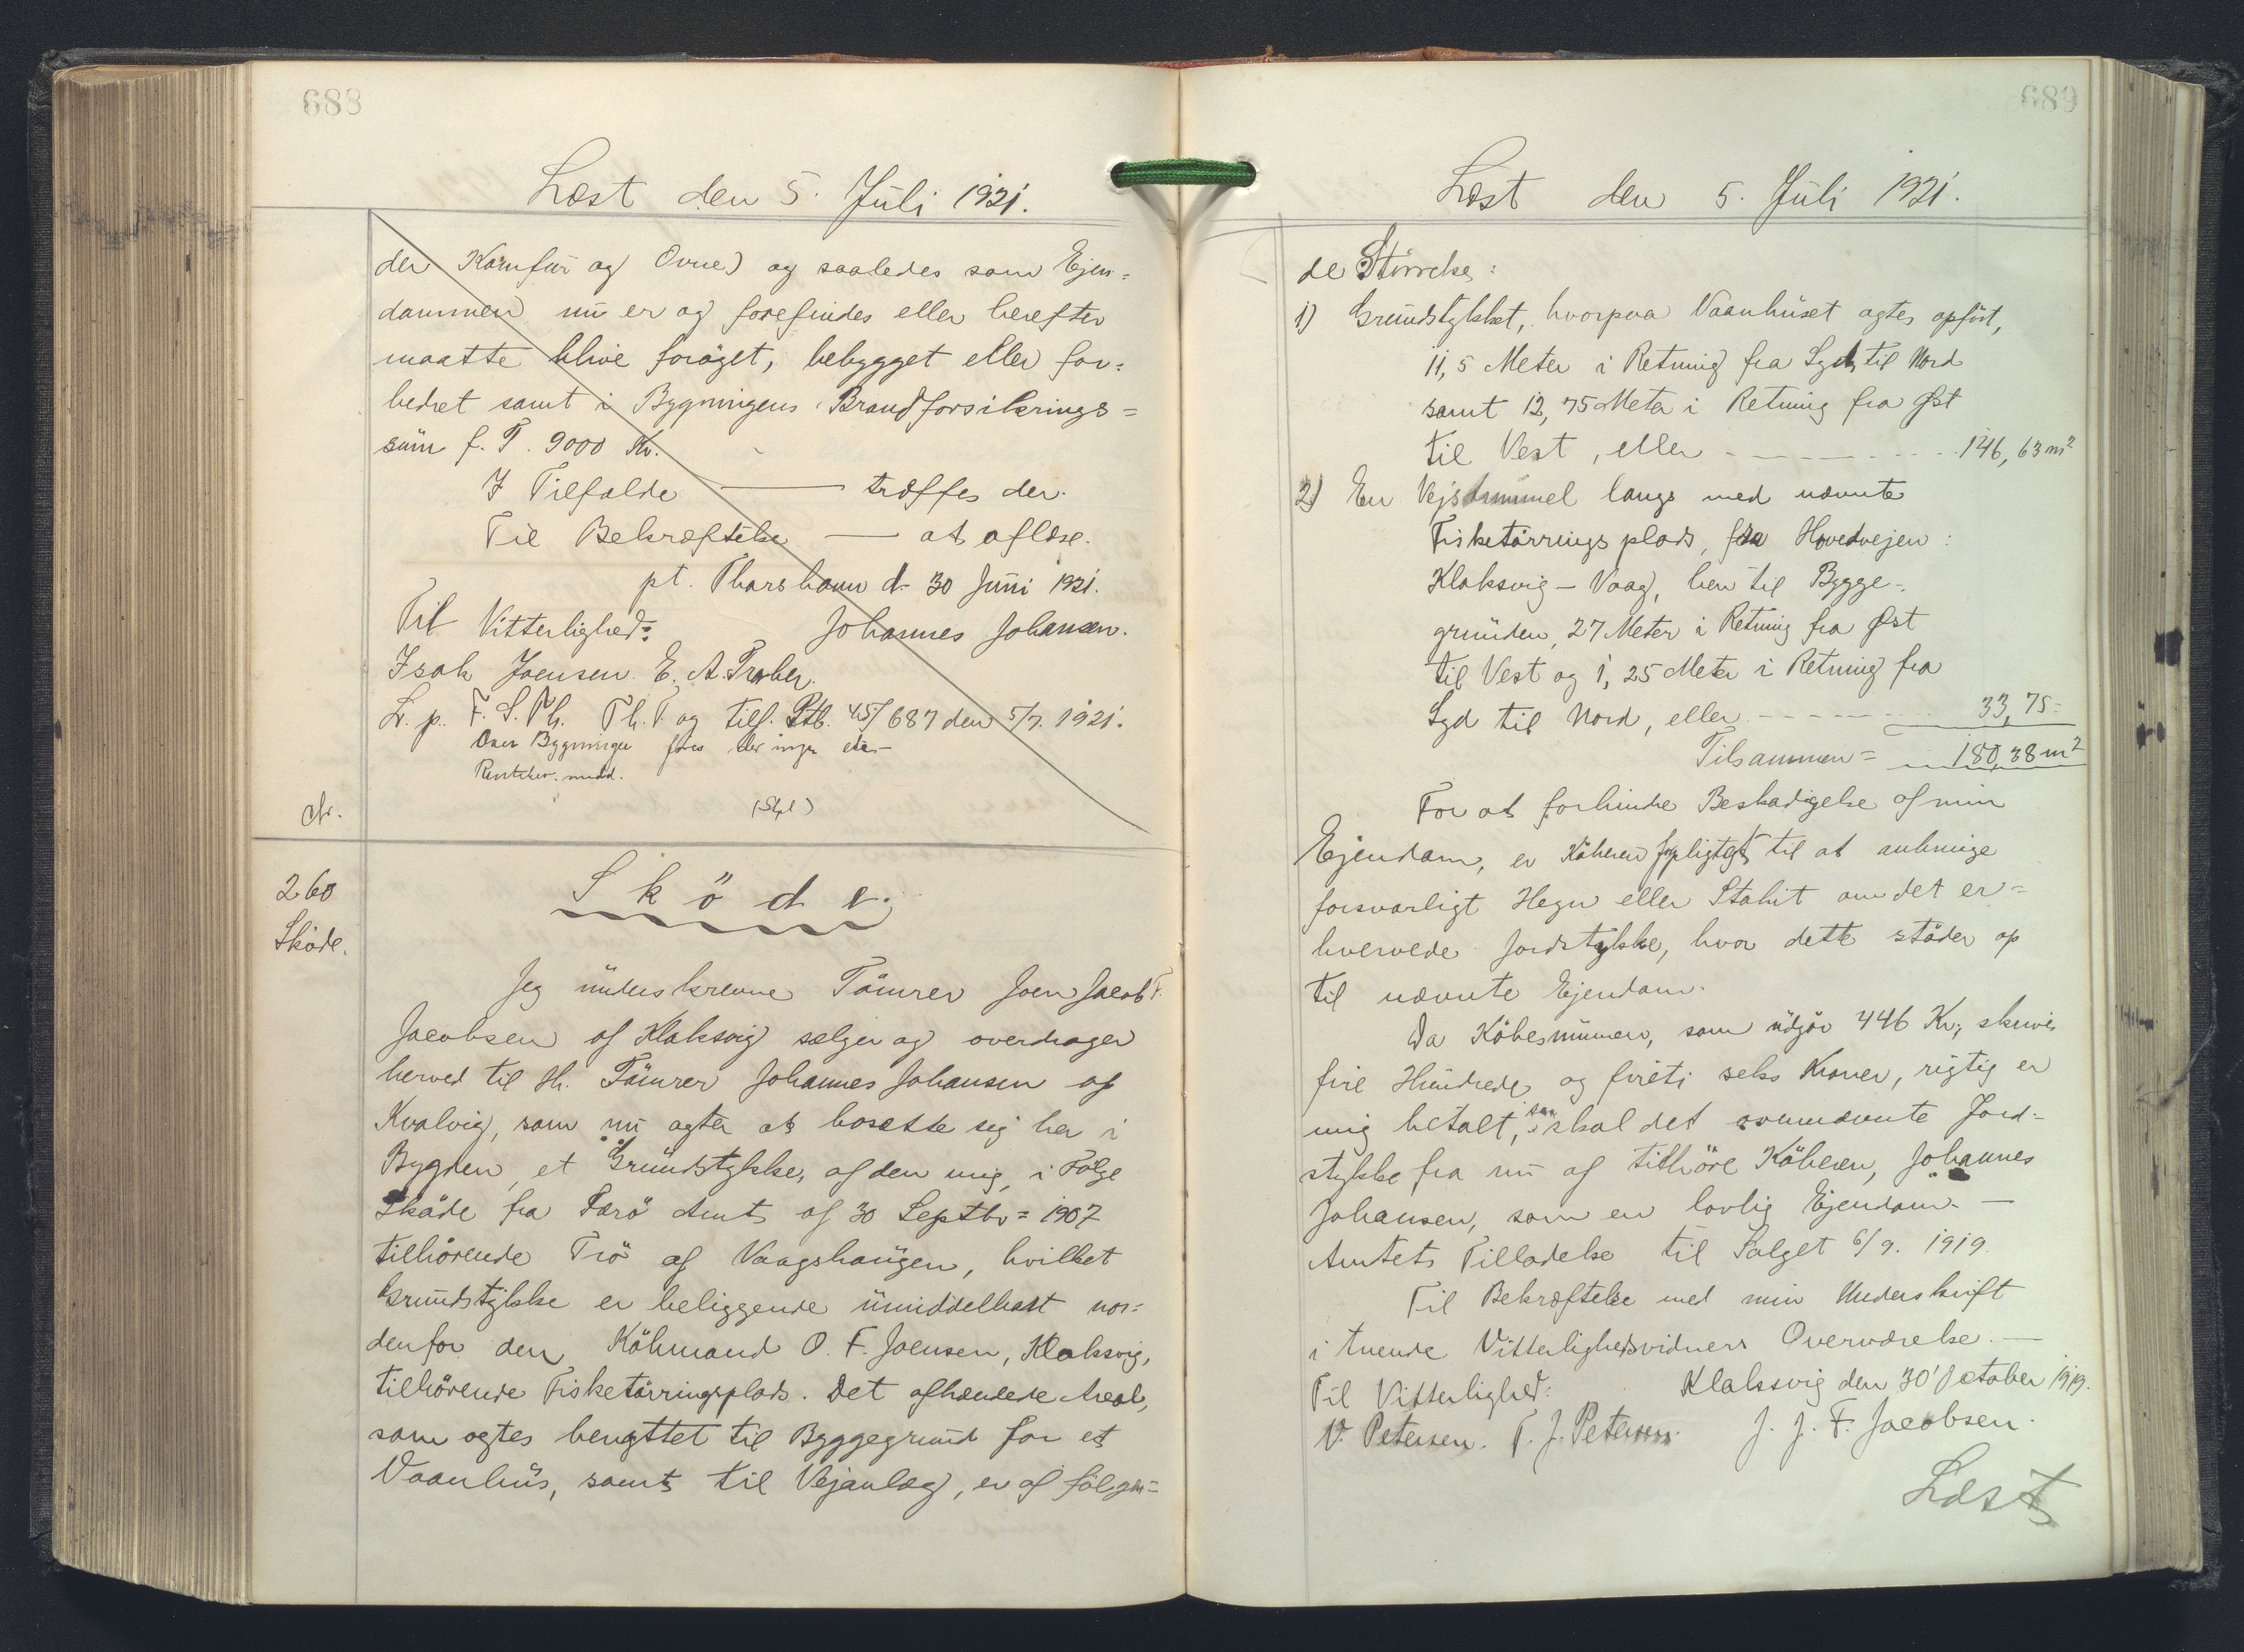 688
Læst den 5. Juli 1921.
der Komfur og Ovne) og saaledes som Ejen=
dommen nu er og forefindes eller herefter
maatte blive forøget, bebygget eller for=
bedret samt i Bygningens Brandforsikrings=
sum f. T. 9000 Kr.
I Tilfælde — træffes der.
Til Bekræftelse — at aflæse.
pt. Thorshavn d. 30 Juni 1921.
Til Vitterlighed: Johannes Johansen.
Isak Joensen. E. A.
L. p. F. S. Th. Th. P. og tilf. Ptb. 45/687 den 5/7. 1921.
Over Bygningen
(Stpl)
Nr.
260
Sköde.
Sköde.
Jeg underskrevne Tömrer Joen Jacob F.
Jacobsen af Klaksvig sælger og overdrager
herved til Hr. Tömrer Johannes Johansen af
Kvalvig, som nu agter at bosætte sig her i
Bygden, et Grundstykke, af den mig, i Følge
Sköde fra Færö Amt, af 30 Septbr= 1907
tilhörende Trö af Vaagshaugen, hvilket
Grundstykke er beliggende umiddelbart nor=
denfor den Köbmand O. F. Joensen, Klaksvig,
tilhörende Fisketörringsplads. Det afhændede Areal,
som agtes benyttet til Byggegrund for et
Vaanhus, samt til Vejanlæg, er af fölgen=
689
Læst den 5. Juli 1921.
de Störrelse:
1) Grundstykket, hvorpaa Vaanhuset agtes opfört,
11,5 Meter i Retning fra Syd til Nord
samt 12,75 Meter i Retning fra Øst
til Vest, eller - - - - - 146,63 m²
2) En Vejstrimmel langs med nævnte
Fisketörringsplads, fra Hovedvejen:
Klaksvig - Vaag, hen til Bygge=
grunden, 27 Meter i Retning fra Øst
til Vest og 1,25 Meter i Retning fra
Syd til Nord, eller - - - - - 33,75-
Tilsammen = 180,38 m²
For at forhindre Beskadigelse af min
Ejendom, er Köberen forpligtet til at anbringe
forsvarligt Hegn eller Stakit om det er=
hvervede Jordstykke, hvor dette stöder op
til nævnte Ejendom.
Da Köbesummen, som udgör 446 Kr., skriver
fire Hundrede og firéti seks Kroner, rigtig er
mig betalt, saa skal det ovennævnte Jord=
stykke fra nu af tilhöre Köberen, Johannes
Johansen, som en lovlig Ejendom. —
Amtets Tilladelse til Salget 6/9. 1919.
Til Bekræftelse med min Underskrift
i tvende Vitterlighedsvidners Overværelse. —
Til Vitterlighed: Klaksvig den 30' October 1919.
V. Petersen. T. J. Petersen. J. J. F. Jacobsen.
Læst